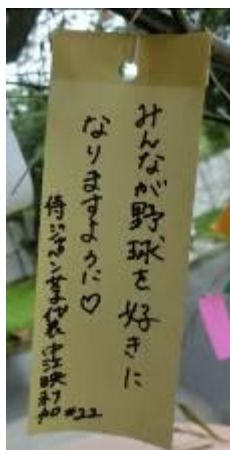 みんなが野球を好きに
なりますように♡
侍ジャパン女子代表 中江映利加 #22